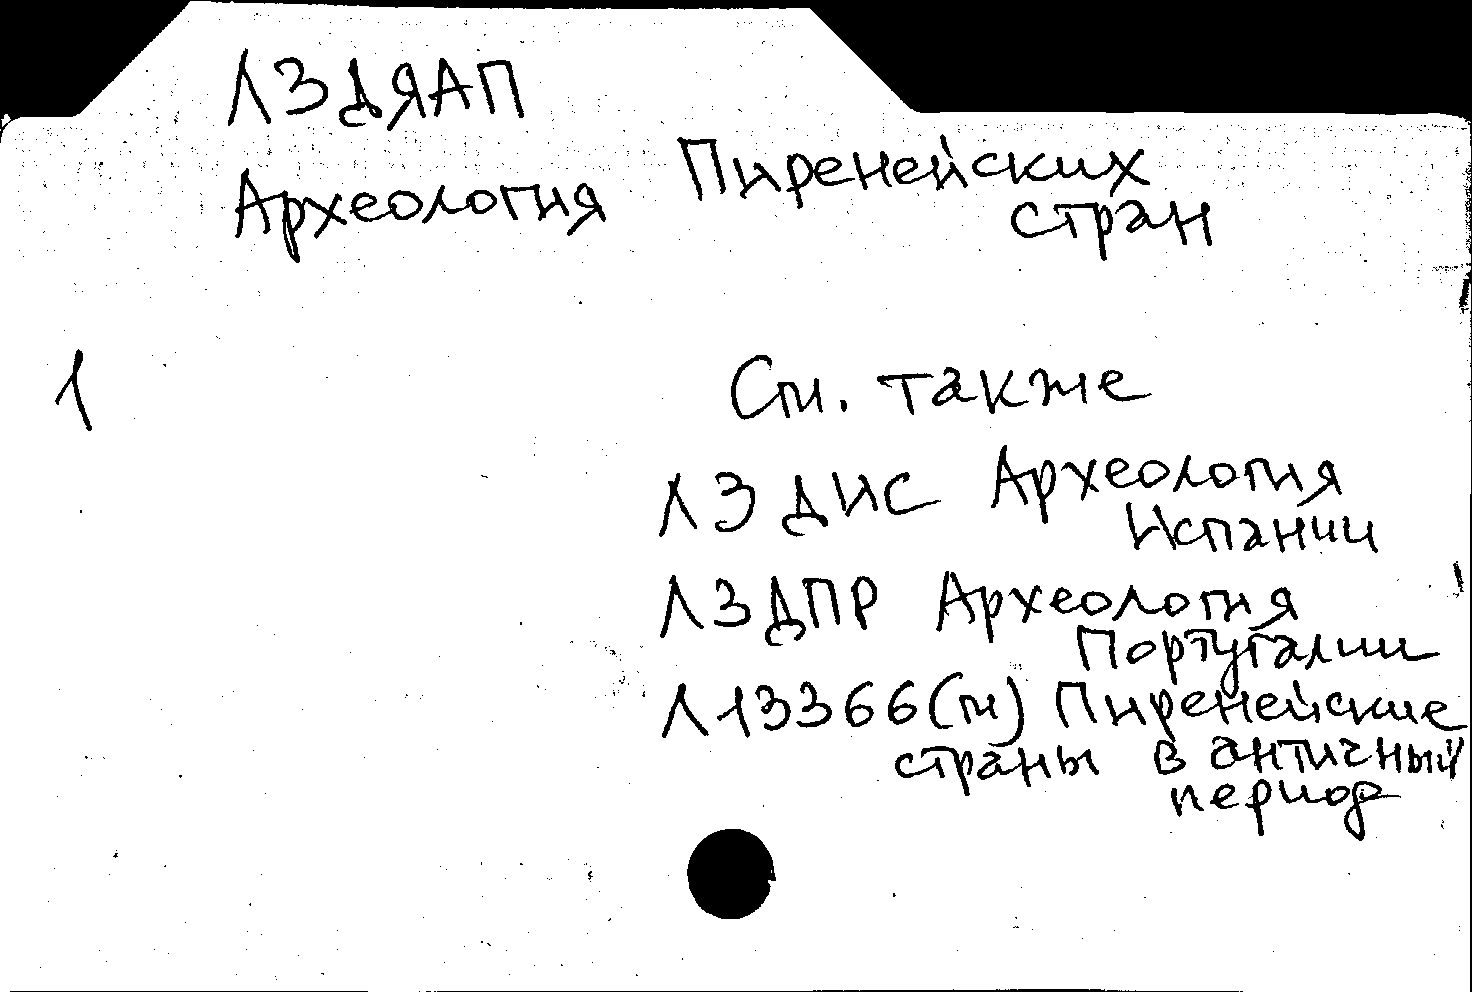 ЛЗДЯАП
Археология Пиренейских
стран
1
См. также
ЛЗДИС Археология
Испании
ЛЗДПР Археология
Португалии
Л13366(м) Пиренейские
страны в античный
период